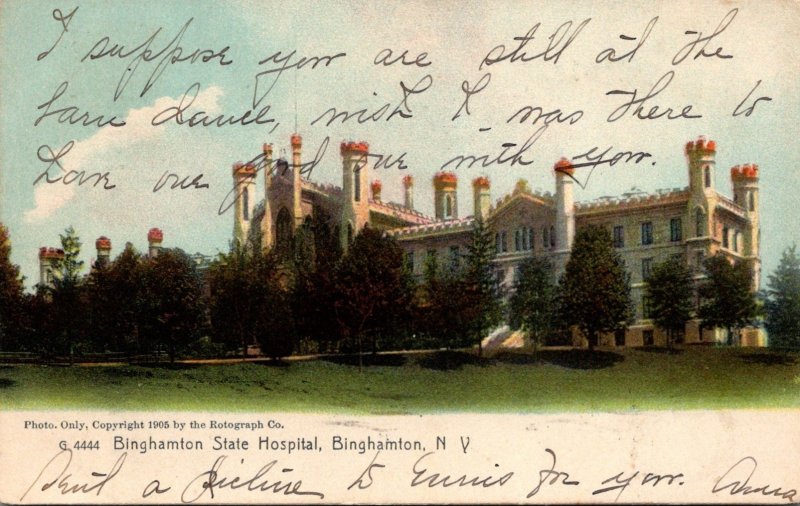 I suppose you are still at the
barn dance, wish I was there to
have one good one with you.
Photo. Only, Copyright 1905 by the Rotograph Co.
G 4444 Binghamton State Hospital, Binghamton, N Y
Sent a picture to Ennis for you. Anna